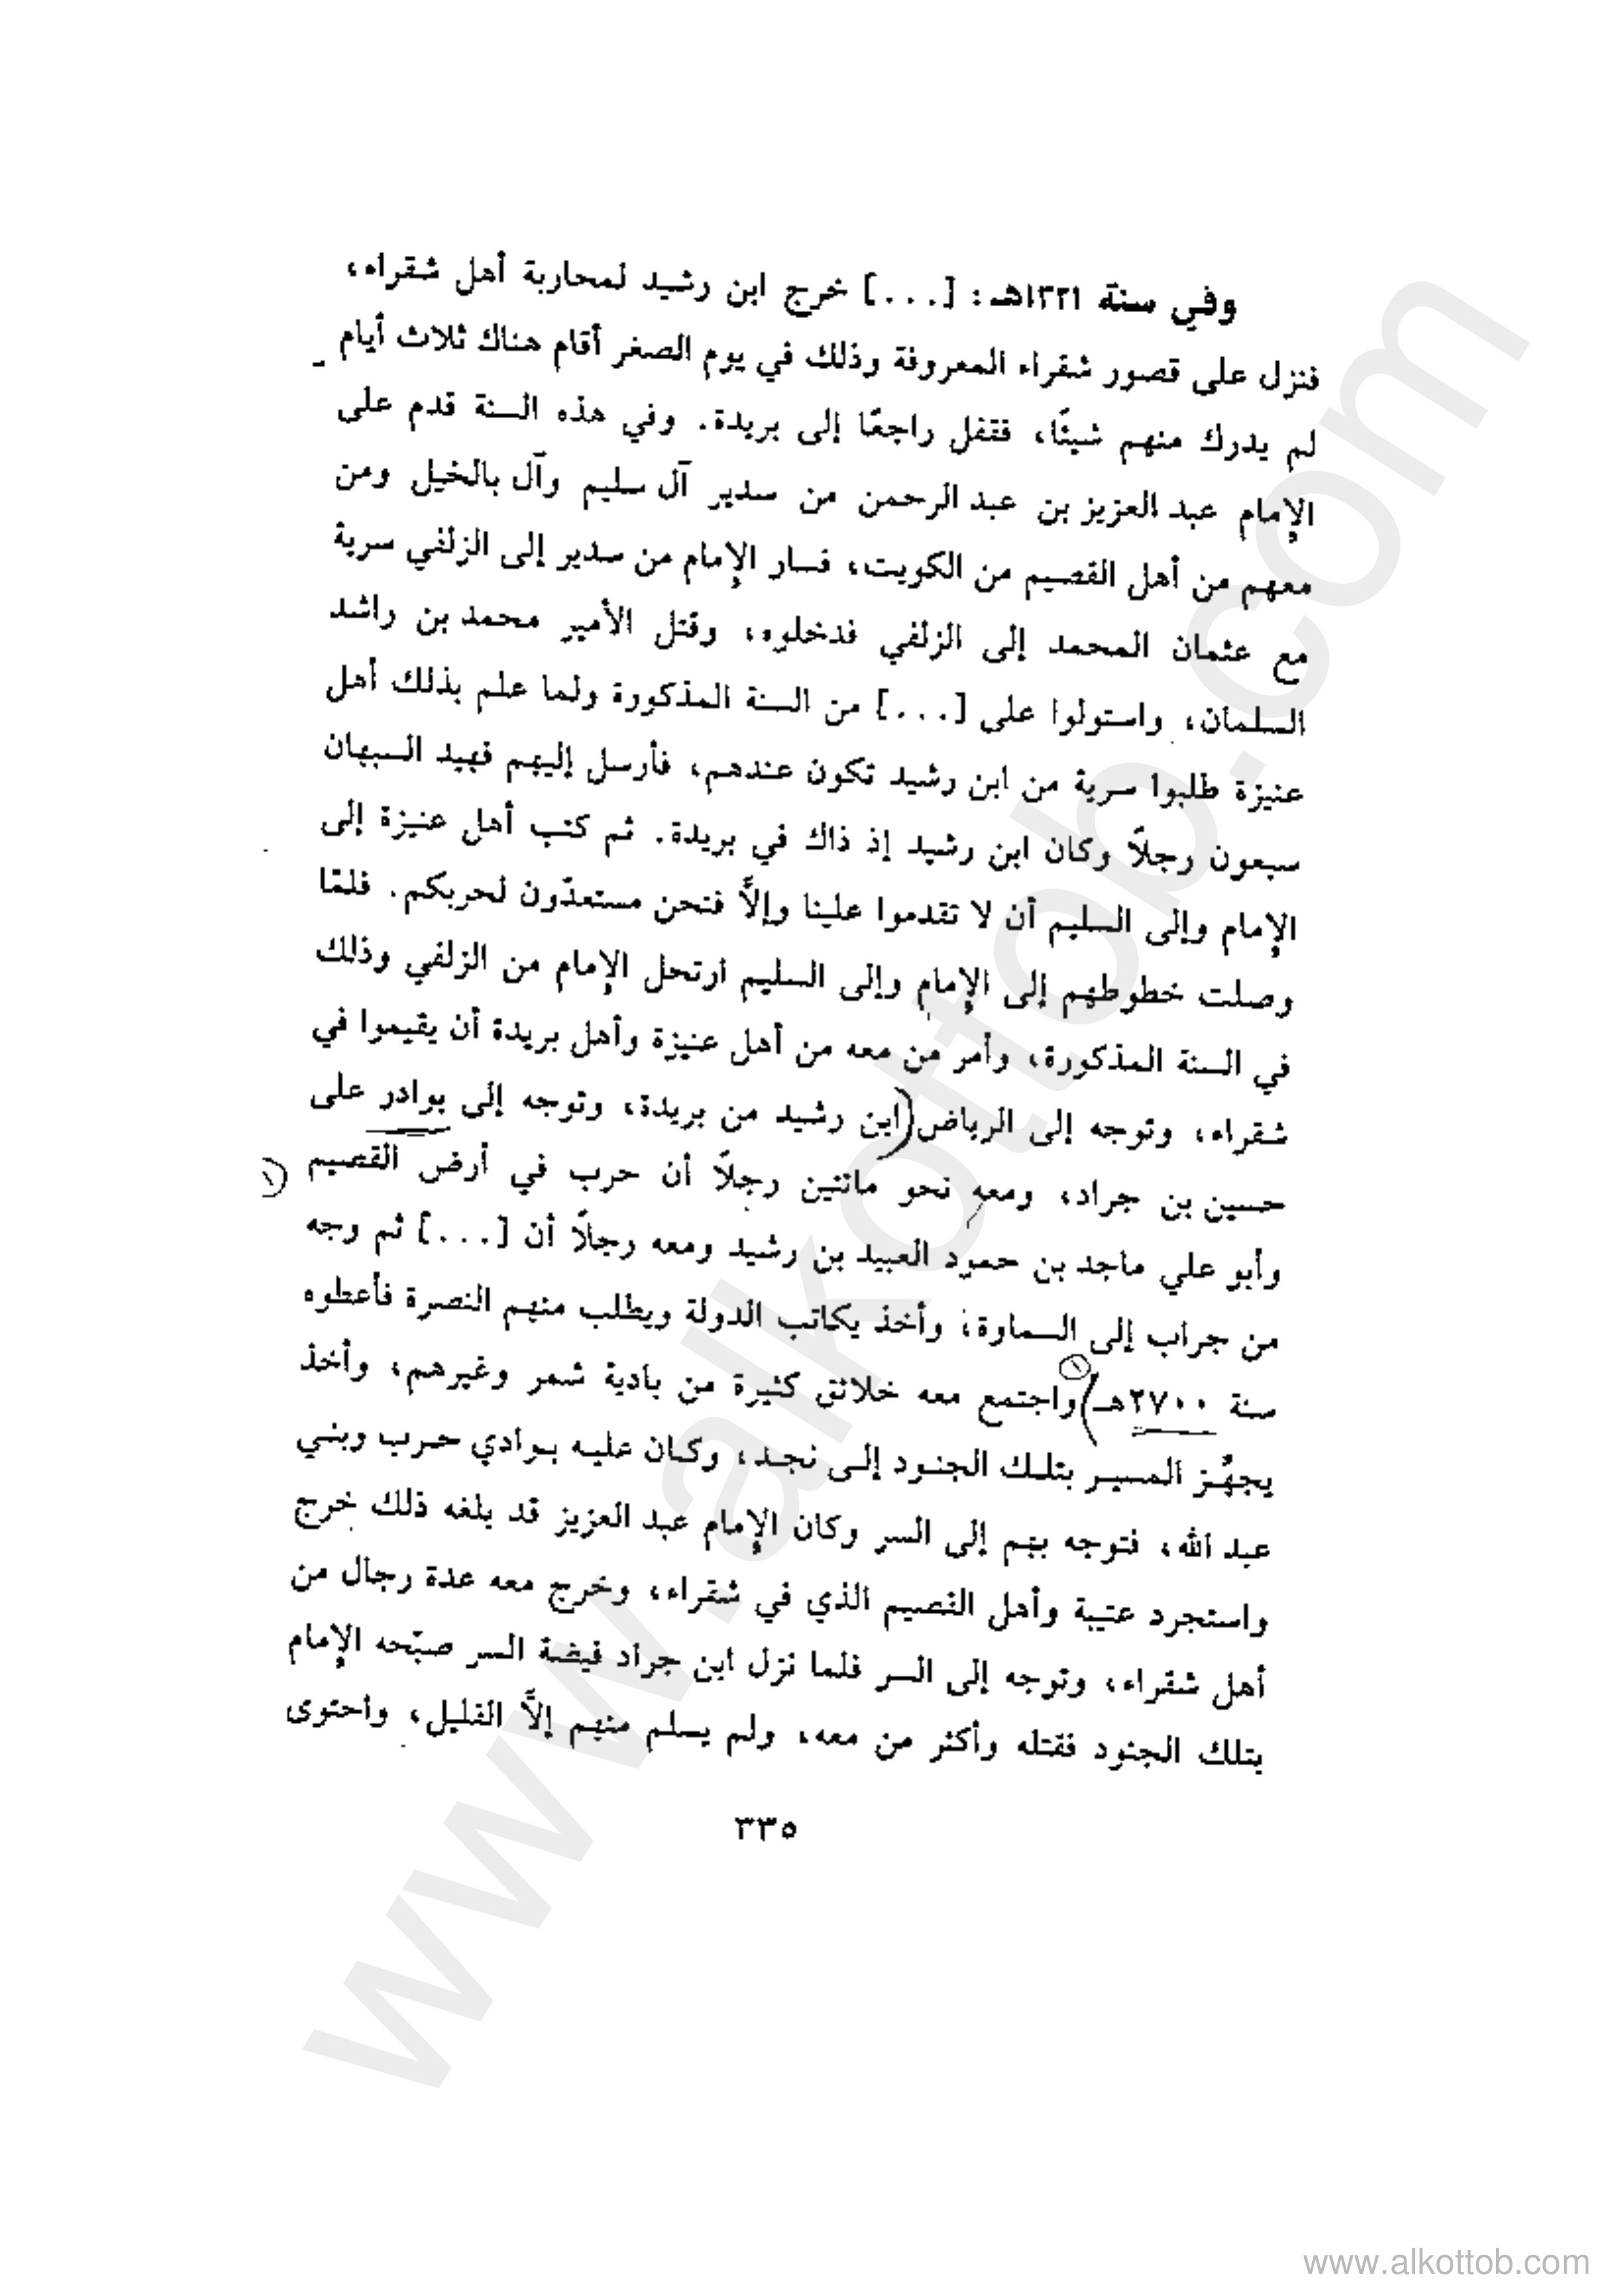 وفي سنة ١٣٢١هـ: [...] خرج ابن رشيد لمحاربة أهل شقراء،
فنزل على قصور شقراء المعروفة وذلك في يوم الصغر أقام هناك ثلاث أيام
لم يدرك منهم شيئًا، فقفل راجعًا إلى بريدة. وفي هذه السنة قدم على
الإمام عبد العزيز بن عبد الرحمن من سدير آل سليم وآل بالخيل ومن
معهم من أهل القصيم من الكويت، فسار الإمام من سدير إلى الزلفي سرية
مع عثمان المحمد إلى الزلفي فدخلوه، وقتل الأمير محمد بن راشد
السلمان، واستولوا على [...] من السنة المذكورة ولما علم بذلك أهل
عنيزة طلبوا سرية من ابن رشيد تكون عندهم، فأرسل إليهم فهيد السبهان
سبعون رجلاً وكان ابن رشيد إذ ذاك في بريدة. ثم كتب أهل عنيزة إلى
الإمام وإلى السليم أن لا تقدموا علينا وإلاَّ فنحن مستعدّون لحربكم. فلمَّا
وصلت خطوطهم إلى الإمام وإلى السليم ارتحل الإمام من الزلفي وذلك
في السنة المذكورة، وأمر من معه من أهل عنيزة وأهل بريدة أن يقيموا في
شقراء، وتوجه إلى الرياض (ابن رشيد من بريدة، وتوجه إلى بوادر على
حسين بن جراد، ومعه نحو مائتين رجلاً أن حرب في أرض القصيم (١)
وأبو علي ماجد بن حمود العبيد بن رشيد ومعه رجلاً أن [...] ثم وجه
من جراب إلى السماوة، وأخذ يكاتب الدولة ويطلب منهم النصرة فأعطوه
سنة ٢٧٠٠هـ) (١) واجتمع معه خلائق كثيرة من بادية شمر وغيرهم، وأخذ
يجهِّز المسير بتلك الجنود إلى نجد، وكان عليه بوادي حرب وبني
عبد الله، فتوجه بهم إلى السر وكان الإمام عبد العزيز قد بلغه ذلك خرج
واستجرد عتيبة وأهل القصيم الذي في شقراء، وخرج معه عدة رجال من
أهل شقراء، وتوجه إلى السر فلما نزل ابن جراد فيضة السر صبّحه الإمام
بتلك الجنود فقتله وأكثر من معه، ولم يسلم منهم إلاَّ القليل، واحتوى
٣٣٥
www.alkottob.com
www.alkottob.com